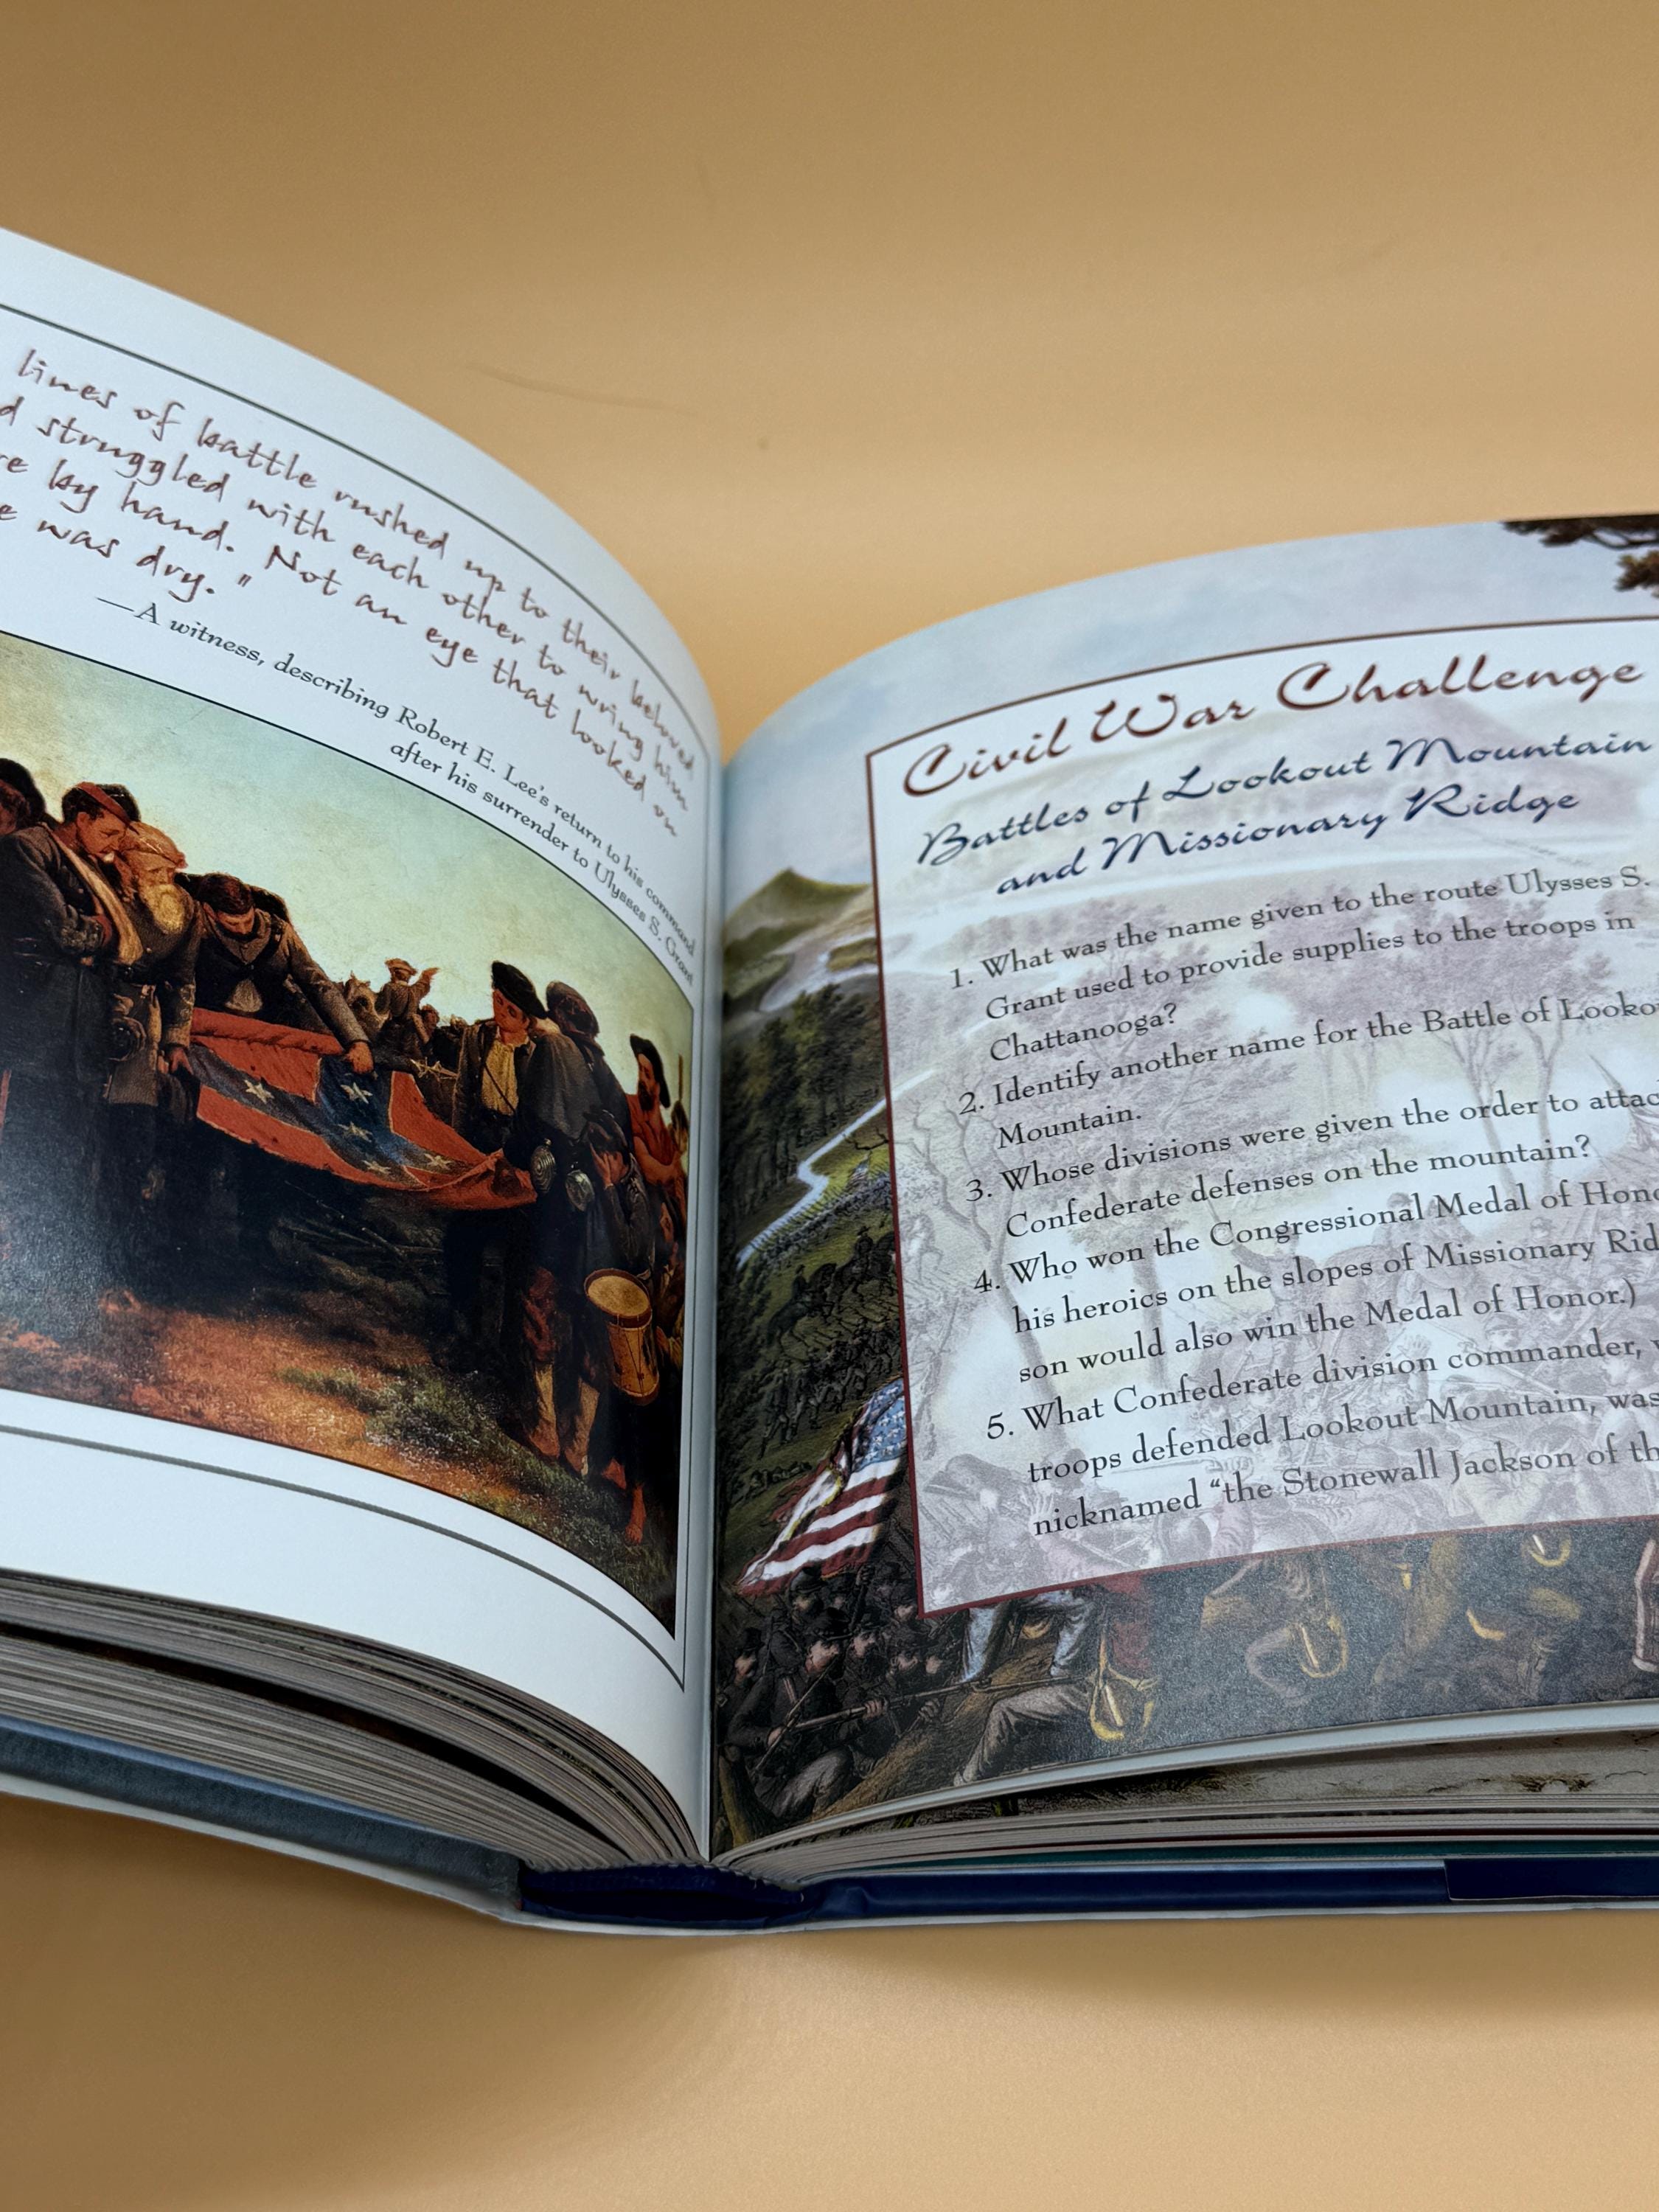 lines of battle rushed up to their beloved
struggled with each other to wring him
by hand. Not an eye that looked on
was dry."
—A witness, describing Robert E. Lee's return to his command
after his surrender to Ulysses S. Grant
Civil War Challenge
Battles of Lookout Mountain
and Missionary Ridge
1. What was the name given to the route Ulysses S.
Grant used to provide supplies to the troops in
Chattanooga?
2. Identify another name for the Battle of Looko
Mountain.
3. Whose divisions were given the order to attac
Confederate defenses on the mountain?
4. Who won the Congressional Medal of Hono
his heroics on the slopes of Missionary Rid
son would also win the Medal of Honor.)
5. What Confederate division commander,
troops defended Lookout Mountain, was
nicknamed "the Stonewall Jackson of th